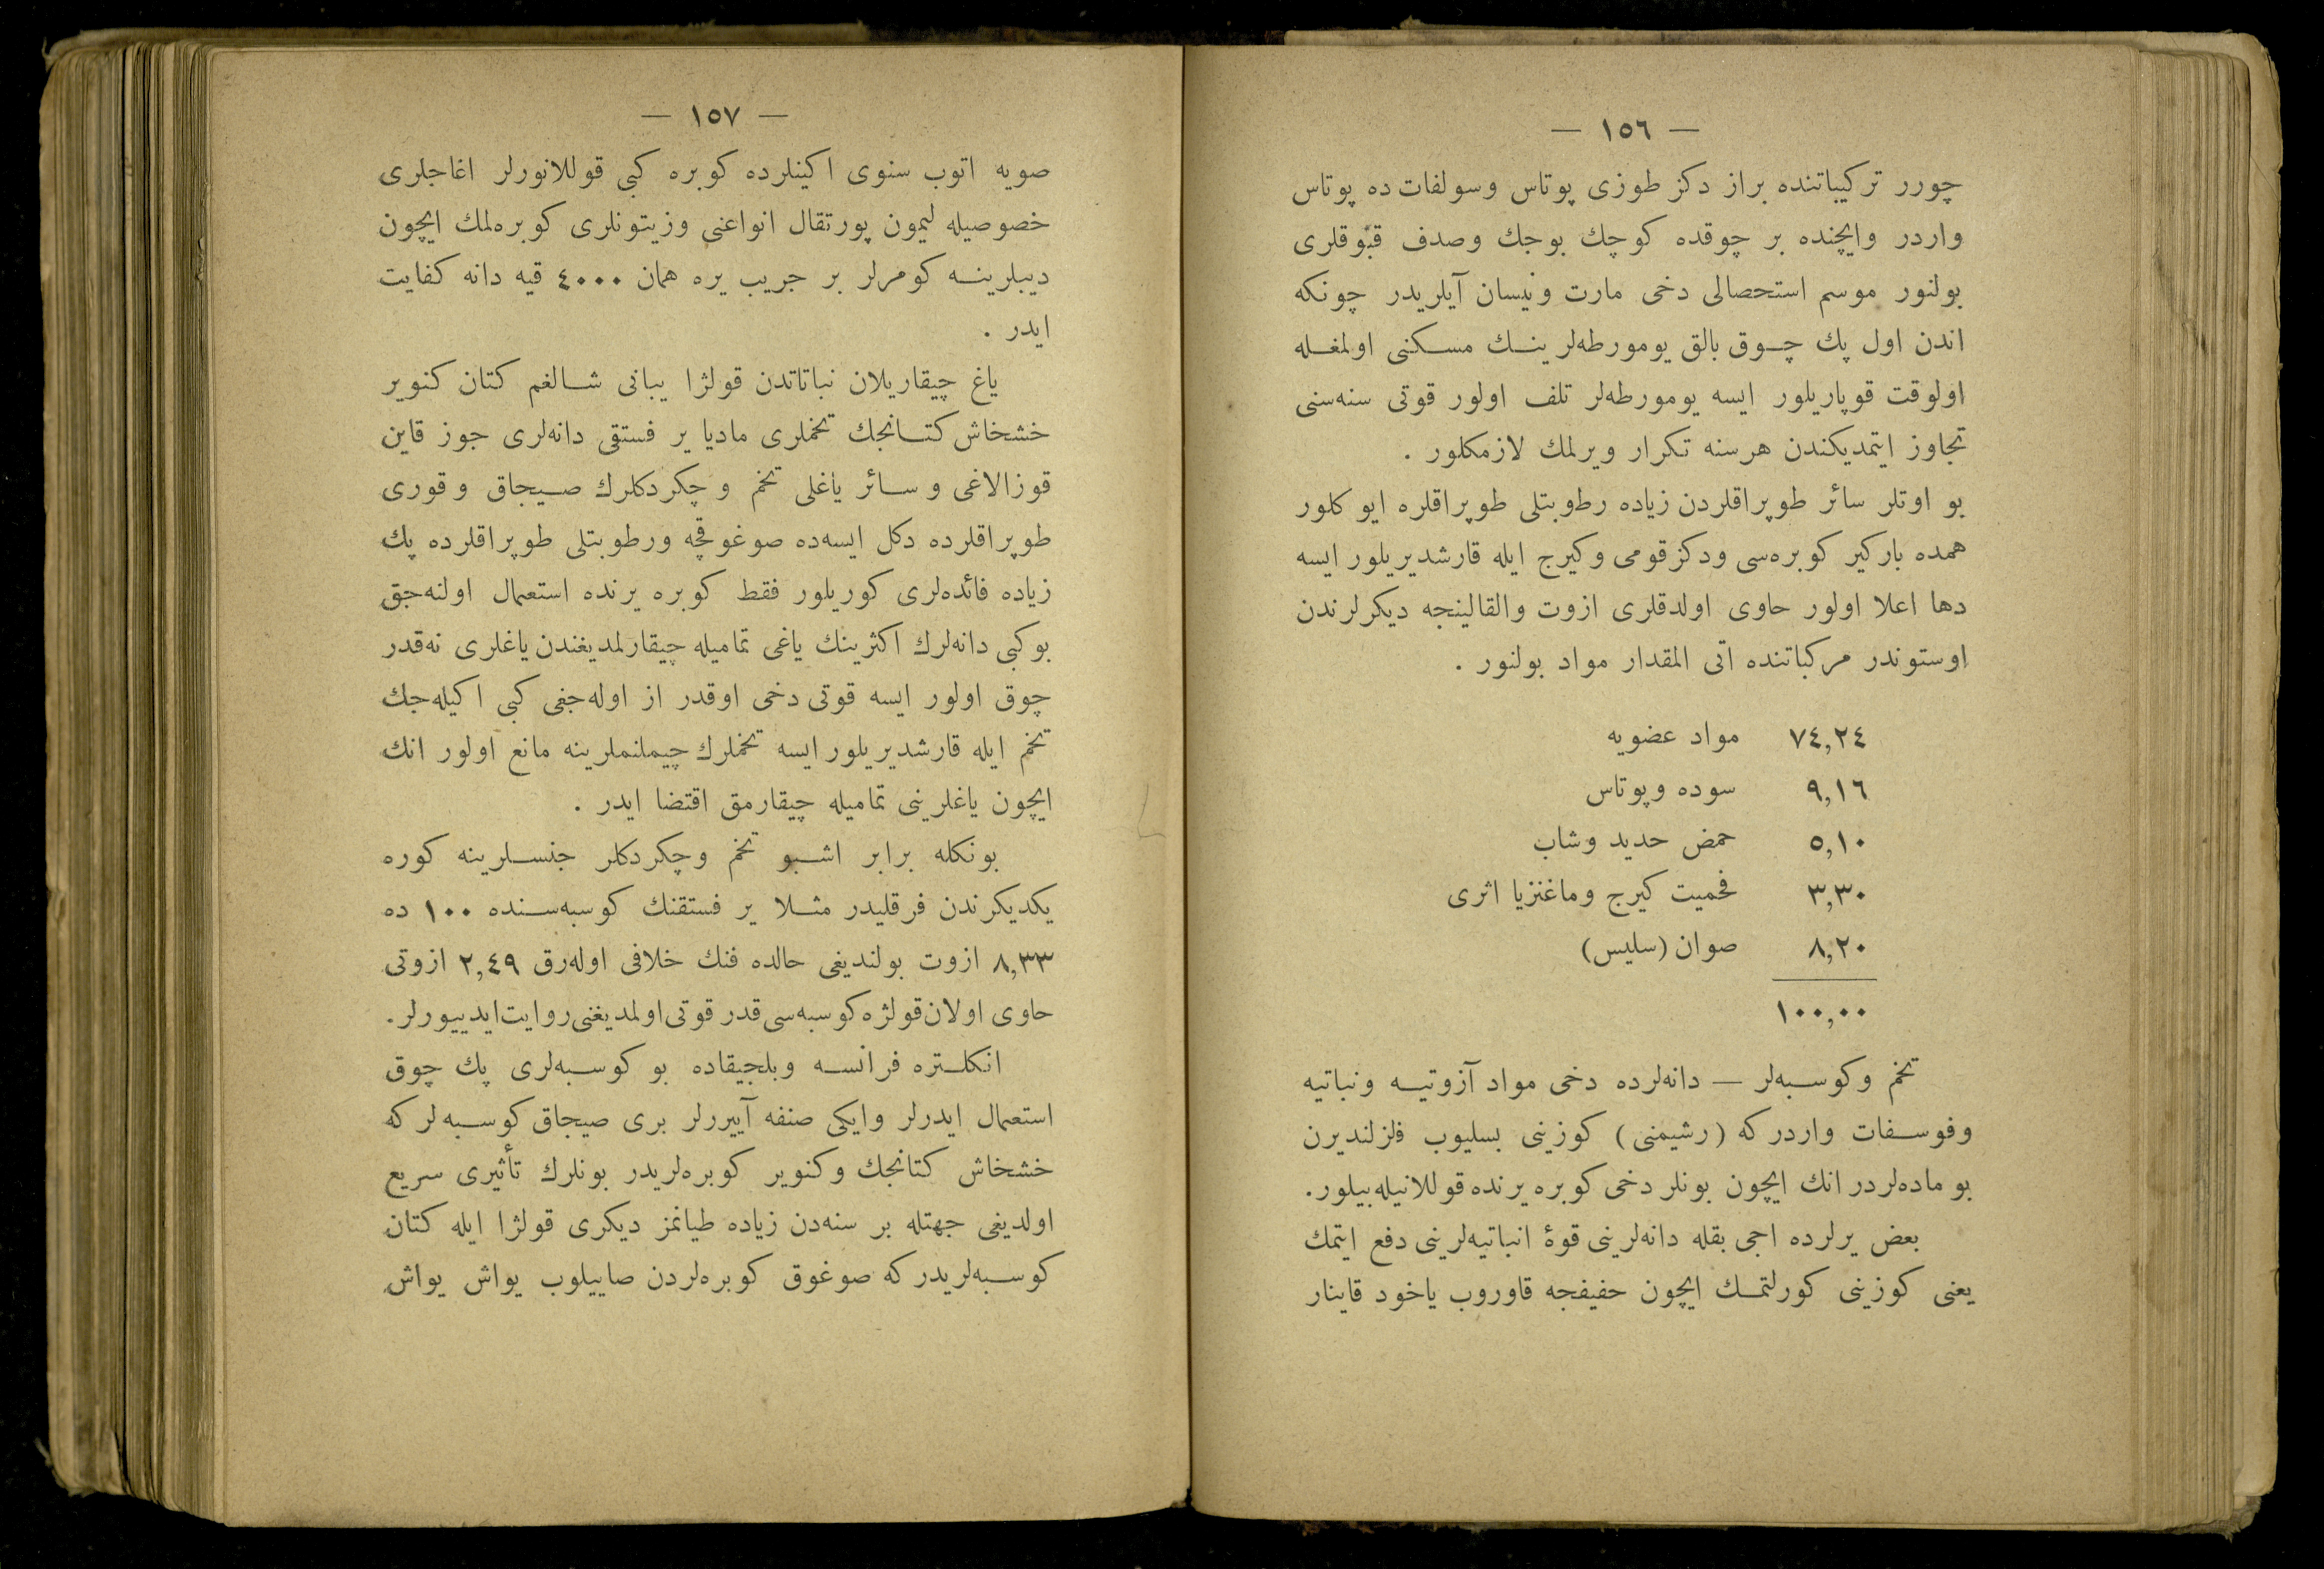 — ١٥٦ —
چورر تركيباتنده براز دكز طوزى پوتاس وسولفات ده پوتاس
واردر وايچنده بر چوقده كوچك بوجك وصدف قبوقلرى
بولنور موسم استحصالى دخى مارت ونيسان آيلريدر چونكه
اندن اول پك چوق بالق يومورطه‌لرينك مسكنى اولمغله
اولوقت قوپاريلور ايسه يومورطه‌لر تلف اولور قوتى سنه‌سنى
تجاوز ايتمديكندن هرسنه تكرار ويرلمك لازمكلور .
بو اوتلر سائر طوپراقلردن زياده رطوبتلى طوپراقلره ايو كلور
همده باركير كوبره‌سى ودكزقومى وكيرج ايله قارشديريلور ايسه
دها اعلا اولور حاوى اولدقلرى ازوت والقالينجه ديكرلرندن
اوستوندر مركباتنده اتى المقدار مواد بولنور .
٧٤,٢٤ مواد عضويه
٩,١٦ سوده وپوتاس
٥,١٠ حمض حديد وشاب
٣,٣٠ فحميت كيرج وماغنزيا اثرى
٨,٢٠ صوان (سليس)
١٠٠,٠٠
تخم وكوسبه‌لر — دانه‌لرده دخى مواد آزوتيه ونباتيه
وفوسفات واردركه (رشيمنى) كوزينى بسليوب فلزلنديرن
بو ماده‌لردر انك ايچون بونلر دخى كوبره يرنده قوللانيله‌بيلور.
بعض يرلرده اجى بقله دانه‌لرينى قوۀ انباتيه‌لرينى دفع ايتمك
يعنى كوزينى كورلتمك ايچون حفيفجه قاوروب ياخود قاينار
— ١٥٧ —
صويه اتوب سنوى اكينلرده كوبره كبى قوللانورلر اغاجلرى
خصوصيله ليمون پورتقال انواعنى وزيتونلرى كوبره‌لمك ايچون
ديبلرينه كومرلر بر جريب يره همان ٤٠٠٠ قيه دانه كفايت
ايدر .
ياغ چيقاريلان نباتاتدن قولژا يبانى شالغم كتان كنوير
خشخاش كتانجك تخملرى ماديا ير فستقى دانه‌لرى جوز قاين
قوزالاغى وسائر ياغلى تخم وچكردكلرك صيجاق وقورى
طوپراقلرده دكل ايسه‌ده صوغوقچه ورطوبتلى طوپراقلرده پك
زياده فائده‌لرى كوريلور فقط كوبره يرنده استعمال اولنه‌جق
بوكبى دانه‌لرك اكثرينك ياغى تماميله چيقارلمديغندن ياغلرى نه‌قدر
چوق اولور ايسه قوتى دخى اوقدر از اوله‌جغى كبى اكيله‌جك
تخم ايله قارشديريلور ايسه تخملرك چيملنملرينه مانع اولور انك
ايچون ياغلرينى تماميله چيقارمق اقتضا ايدر .
بونكله برابر اشبو تخم وچكردكلر جنسلرينه كوره
يكديكرندن فرقليدر مثلا ير فستقنك كوسبه‌سنده ١٠٠ ده
٨,٣٣ ازوت بولنديغى حالده فنك خلافى اوله‌رق ٢,٤٩ ازوتى
حاوى اولان قولژه كوسبه‌سى قدر قوتى اولمديغنى روايت ايدييورلر.
انكلتره فرانسه وبلجيقاده بو كوسبه‌لرى پك چوق
استعمال ايدرلر وايكى صنفه آييررلر برى صيجاق كوسبه‌لركه
خشخاش كتانجك وكنوير كوبره‌لريدر بونلرك تأثيرى سريع
اولديغى جهتله بر سنه‌دن زياده طيانمز ديكرى قولژا ايله كتان
كوسبه‌لريدركه صوغوق كوبره‌لردن صاييلوب يواش يواش